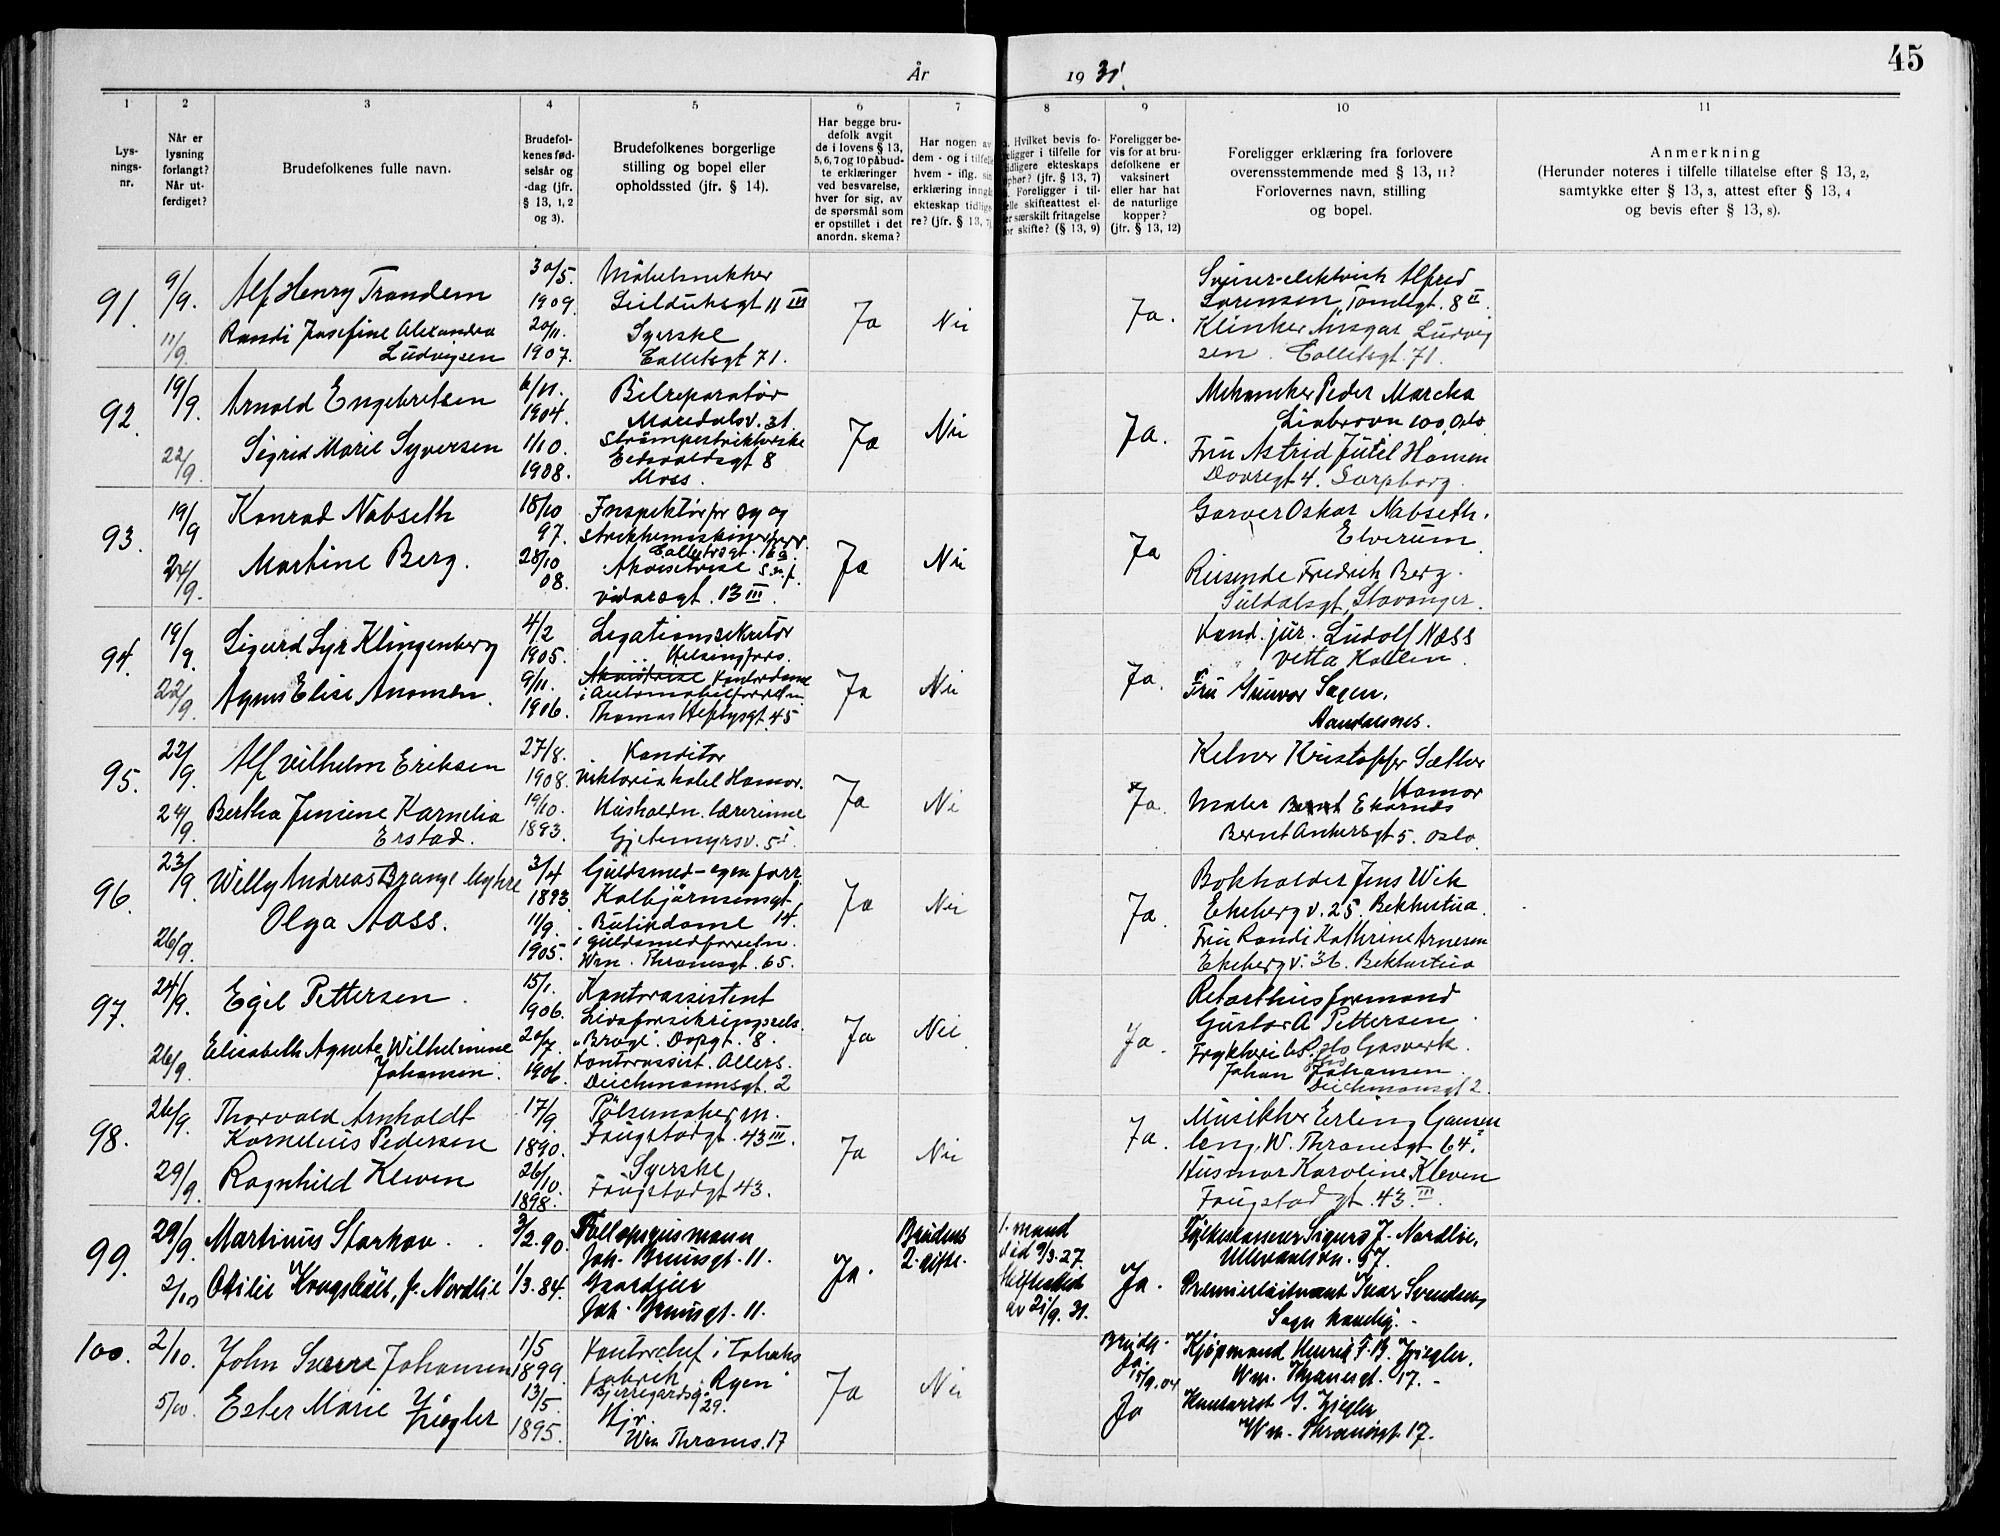 45
År 1931.
1 2 3 4 5 6 7 8 9 10 11
Lys-
nings-
nr.
Når er
lysning
forlangt?
Når ut-
ferdiget?
Brudefolkenes fulle navn.
Brudefol-
kenes fød-
selsår og
-dag (jfr.
§ 13, 1, 2
og 3).
Brudefolkenes borgerlige
stilling og bopel eller
opholdssted (jfr. § 14).
Har begge bru-
defolk avgit
de i lovens § 13,
5, 6, 7 og 10 påbud-
te erklæringer
ved besvarelse,
hver for sig, av
de spørsmål som
er opstillet i det
anordn. skema?
Har nogen av
dem - og i tilfelle
hvem - iflg. sin
erklæring inngå
ekteskap tidlige
re? (jfr. § 13, 7)
Hvilket bevis fo-
religger i tilfelle for
tidligere ekteskaps
ophør? (jfr. § 13, 7)
Foreligger i til-
felle skifteattest el-
ler særskilt fritagelse
for skifte? (§ 13, 9)
Foreligger be-
vis for at bru-
defolkene er
vaksinert
eller har hat
de naturlige
kopper?
(jfr. § 13, 12)
Foreligger erklæring fra forlovere
overensstemmende med § 13, 11?
Forlovernes navn, stilling
og bopel.
Anmerkning
(Herunder noteres i tilfelle tillatelse efter § 13, 2,
samtykke efter § 13, 3, attest efter § 13, 4
og bevis efter § 13, 8).
91. 9/9. 11/9.
Alf Henry Trandem
Randi Josefine Alexandra
Ludvigsen
30/5.
1909.
20/11.
1907.
Møbelsnekker
11 III
Syerske
Colletsgt 71.
Ja Nei Ja.
Alfred
Sørensen, 8 II
Ansgar Ludvig
sen. Colletsgt. 71.
92. 19/9. 22/9.
Arnold Engebretsen
Sigrid Marie Syversen
6/11.
1904.
1/10.
1908.
Bilreparatør
Maridalsv. 31.
Strømpestrikkerske
Eidsvoldsgt 8
Moss.
Ja Nei Ja.
Mekaniker Peder
Liabrovn 100, Oslo
Fru Astrid Jutil Hansen
Dovregt 4. Sarpborg.
93. 19/9 24/9.
Konrad Nabseth
Martine Berg.
18/10
97.
28/10
08.
Inspektør for sy og
strikkemaskin
Colletsgt.
vidarsgt. 13 III.
Ja Nei Ja
Garver Oskar Nabseth.
Elverum.
Reisende Fredrik Berg.
Suldalsgt, Stavanger.
94. 19/9. 22/9.
Sigurd Syr Klingenberg
Agnes Elise Anonsen.
4/2
1905.
9/11.
1906.
Legationssekretær
Helsingfors.
Kontordame
i Automobilforretn.
Thomas Heftysgt. 45
Ja Nei Ja.
Kand. jur. Ludolf Næss
Vetta Kollen.
Fru Gunvor Sagen,
Aandalsnes.
95. 22/9. 24/9.
Alf Vilhelm Eriksen
Bertha Jensine Kornelia
Erstad.
27/8.
1908.
19/10.
1893.
Konditor
Viktoria hotel Hamar.
Husholdn. lærerinne
Gjetemyrsv. 5 I
Ja Nei Ja.
Kelner Kristoffer Sæther
Hamar
Maler Bernt Ekornes
Bernt Ankersgt 5. Oslo.
96. 23/9. 26/9.
Willy Andreas Brange Myhre
Olga Aass.
3/4
1893.
11/9.
1905.
Guldsmed - egen forr.
Kolbjørnsensgt
14.
Butikdame
i guldsmedforretn.
Wm. Thranesgt. 65.
Ja Nei Ja.
Bokholder Jens Wik
Ekeberg v. 25. Bekkestua.
Fru Randi Kathrine Arnesen
Ekeberg v. 36. Bekkestua
97. 24/9. 26/9.
Egil Pettersen.
Elisabeth Agnete Wilhelmine
Johansen.
15/1.
1906.
20/7.
1906.
Kontorassistent
Livsforsikringssels.
"Brage". Dopgt. 8.
Kontorassist. Allers.
Deichmannsgt. 2
Ja Nei Ja.
Retorthusformand
Gustav A Pettersen.
Oslo Gasverk.
Johan Johansen.
Deichmansgt 2.
98. 26/9. 29/9.
Thorvald Arnholdt
Kornelius Pedersen
Ragnhild Kleven
17/9.
1890.
26/10.
1898.
Pølsemaker m.
Faugstadgt. 43 III.
Syerske
Faugstadgt 43.
Ja Nei Ja.
Musikker Erling
W. Thranesgt 64.
Husmor Karoline Kleven
Faugstadgt. 43 III.
99. 29/9. 2/10
Martinus Storhov.
Otilie Kongshall, f. Nordlie
3/2. 90.
1/3. 84.
Joh. Bruunsgt. 11.
Joh. Bruunsgt. 11.
Ja.
Brudens
2. gifte.
1. mand
død 9/3.27.
Skifteattest
av 21/9. 31.
Ja.
Sigurd J. Nordlie,
Ullevaalsvn. 57.
Premierløitnant Ivar Svendsen,
100. 2/10. 5/10.
John Sverre Johansen
Ester Marie Ziegler
1/5
1899.
13/5.
1895.
Kontorchef i Tobaks
fabrik "Ryen"
Bjerregårdsg. 29.
Hjv.
Wm Thranes. 17
Ja Nei
Brudg.
Ja.
15/9. 04
Ja
Kjøpmand Henrik F. B. Ziegler,
Wm. Thranesgt. 17.
Kontorist G. Ziegler
Wm. Thranesgt. 17.